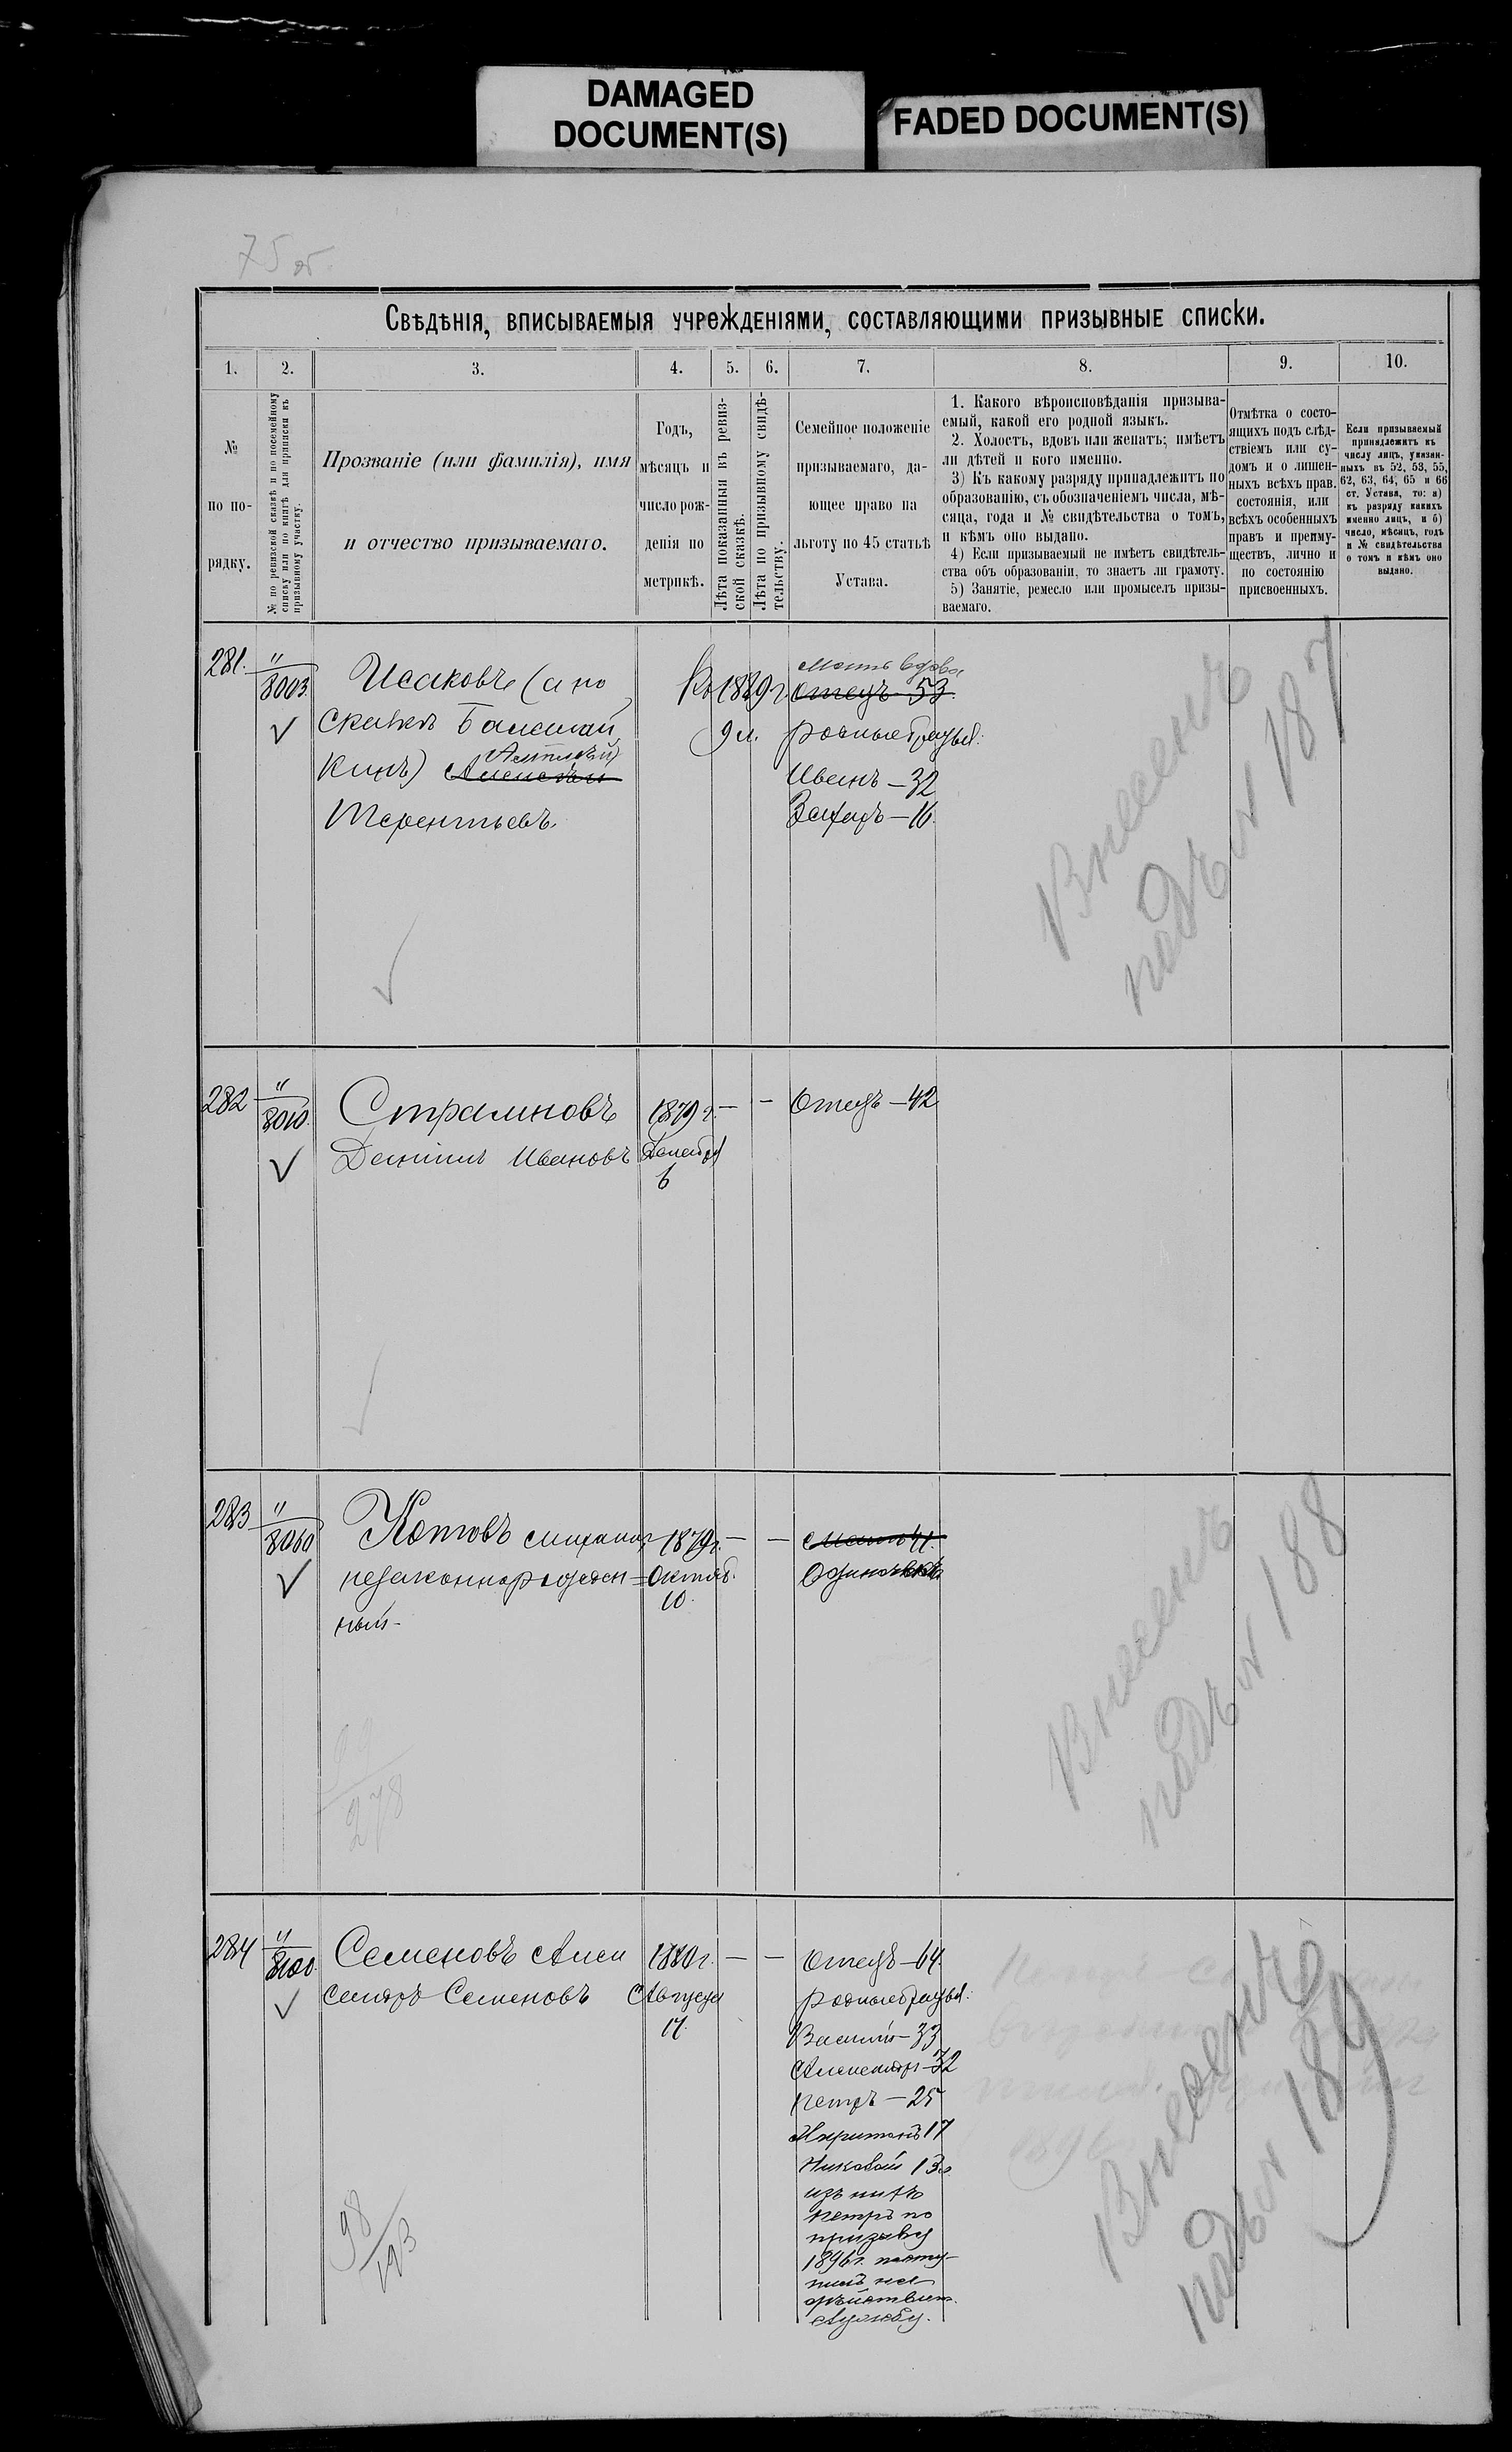 DAMAGED
DOCUMENT(S)
FADED DOCUMENT(S)
75 об.
Свѣдѣнія, вписываемыя учрежденіями, составляющими призывные списки.
1. 2. 3. 4. 5. 6. 7. 8. 9. 10.
№
по по-
рядку.
№ по ревизской сказкѣ и по посемейному
списку или по книгѣ для приписки къ
призывному участку.
Прозваніе (или фамилія), имя
и отчество призываемаго.
Годъ,
мѣсяцъ и
число рож-
денія по
метрикѣ.
Лѣта показанныя въ ревиз-
ской сказкѣ.
Лѣта по призывному свидѣ-
тельству.
Семейное положеніе
призываемаго, да-
ющее право на
льготу по 45 статьѣ
Устава.
1. Какого вѣроисповѣданія призыва-
емый, какой его родной языкъ.
2. Холостъ, вдовъ или женатъ; имѣетъ
ли дѣтей и кого именно.
3) Къ какому разряду принадлежитъ по
образованію, съ обозначеніемъ числа, мѣ-
сяца, года и № свидѣтельства о томъ,
и кѣмъ оно выдано.
4) Если призываемый не имѣетъ свидѣтель-
ства объ образованіи, то знаетъ ли грамоту.
5) Занятіе, ремесло или промыселъ призы-
ваемаго.
Отмѣтка о состо-
ящихъ подъ слѣд-
ствіемъ или су-
домъ и о лишен-
ныхъ всѣхъ прав.
состоянія, или
всѣхъ особенныхъ
правъ и преиму-
ществъ, лично и
по состоянію
присвоенныхъ.
Если призываемый
принадлежитъ къ
числу лицъ, указан-
ныхъ въ 52, 53, 55,
62, 63, 64, 65 и 66
ст. Устава, то: а)
къ разряду какихъ
именно лицъ, и б)
число, мѣсяцъ, годъ
и № свидѣтельства
о томъ и кѣмъ оно
выдано.
281.
"
8003.
Исаковъ (а по
кинъ)
Терентьевъ.
9 л.
мать вдова
отецъ 53.
родные братья:
Иванъ — 32
Захаръ — 16.
Внесенъ
подъ № 187
282
"
8010.
Данiилъ Ивановъ
1879 г. — —
Декабря
6
Отецъ — 42
283
"
8060
Котовъ
незаконнорожден=
ный
1879 г. — —
Октяб.
10.
мать 41.
Одиночка
Внесенъ
подъ № 188
278
284
"
8100.
Семеновъ Алек
сандръ Семеновъ
1880 г. — —
Августа
17.
Отецъ — 64.
родные братья:
Василiй — 33
Александръ — 32
Петръ — 25
Харитонъ 17
Николай 13.
изъ нихъ
Петръ по
призыву
1896 г. посту-
пилъ на
дѣйствит.
службу.
Внесенъ
подъ № 189
98
193